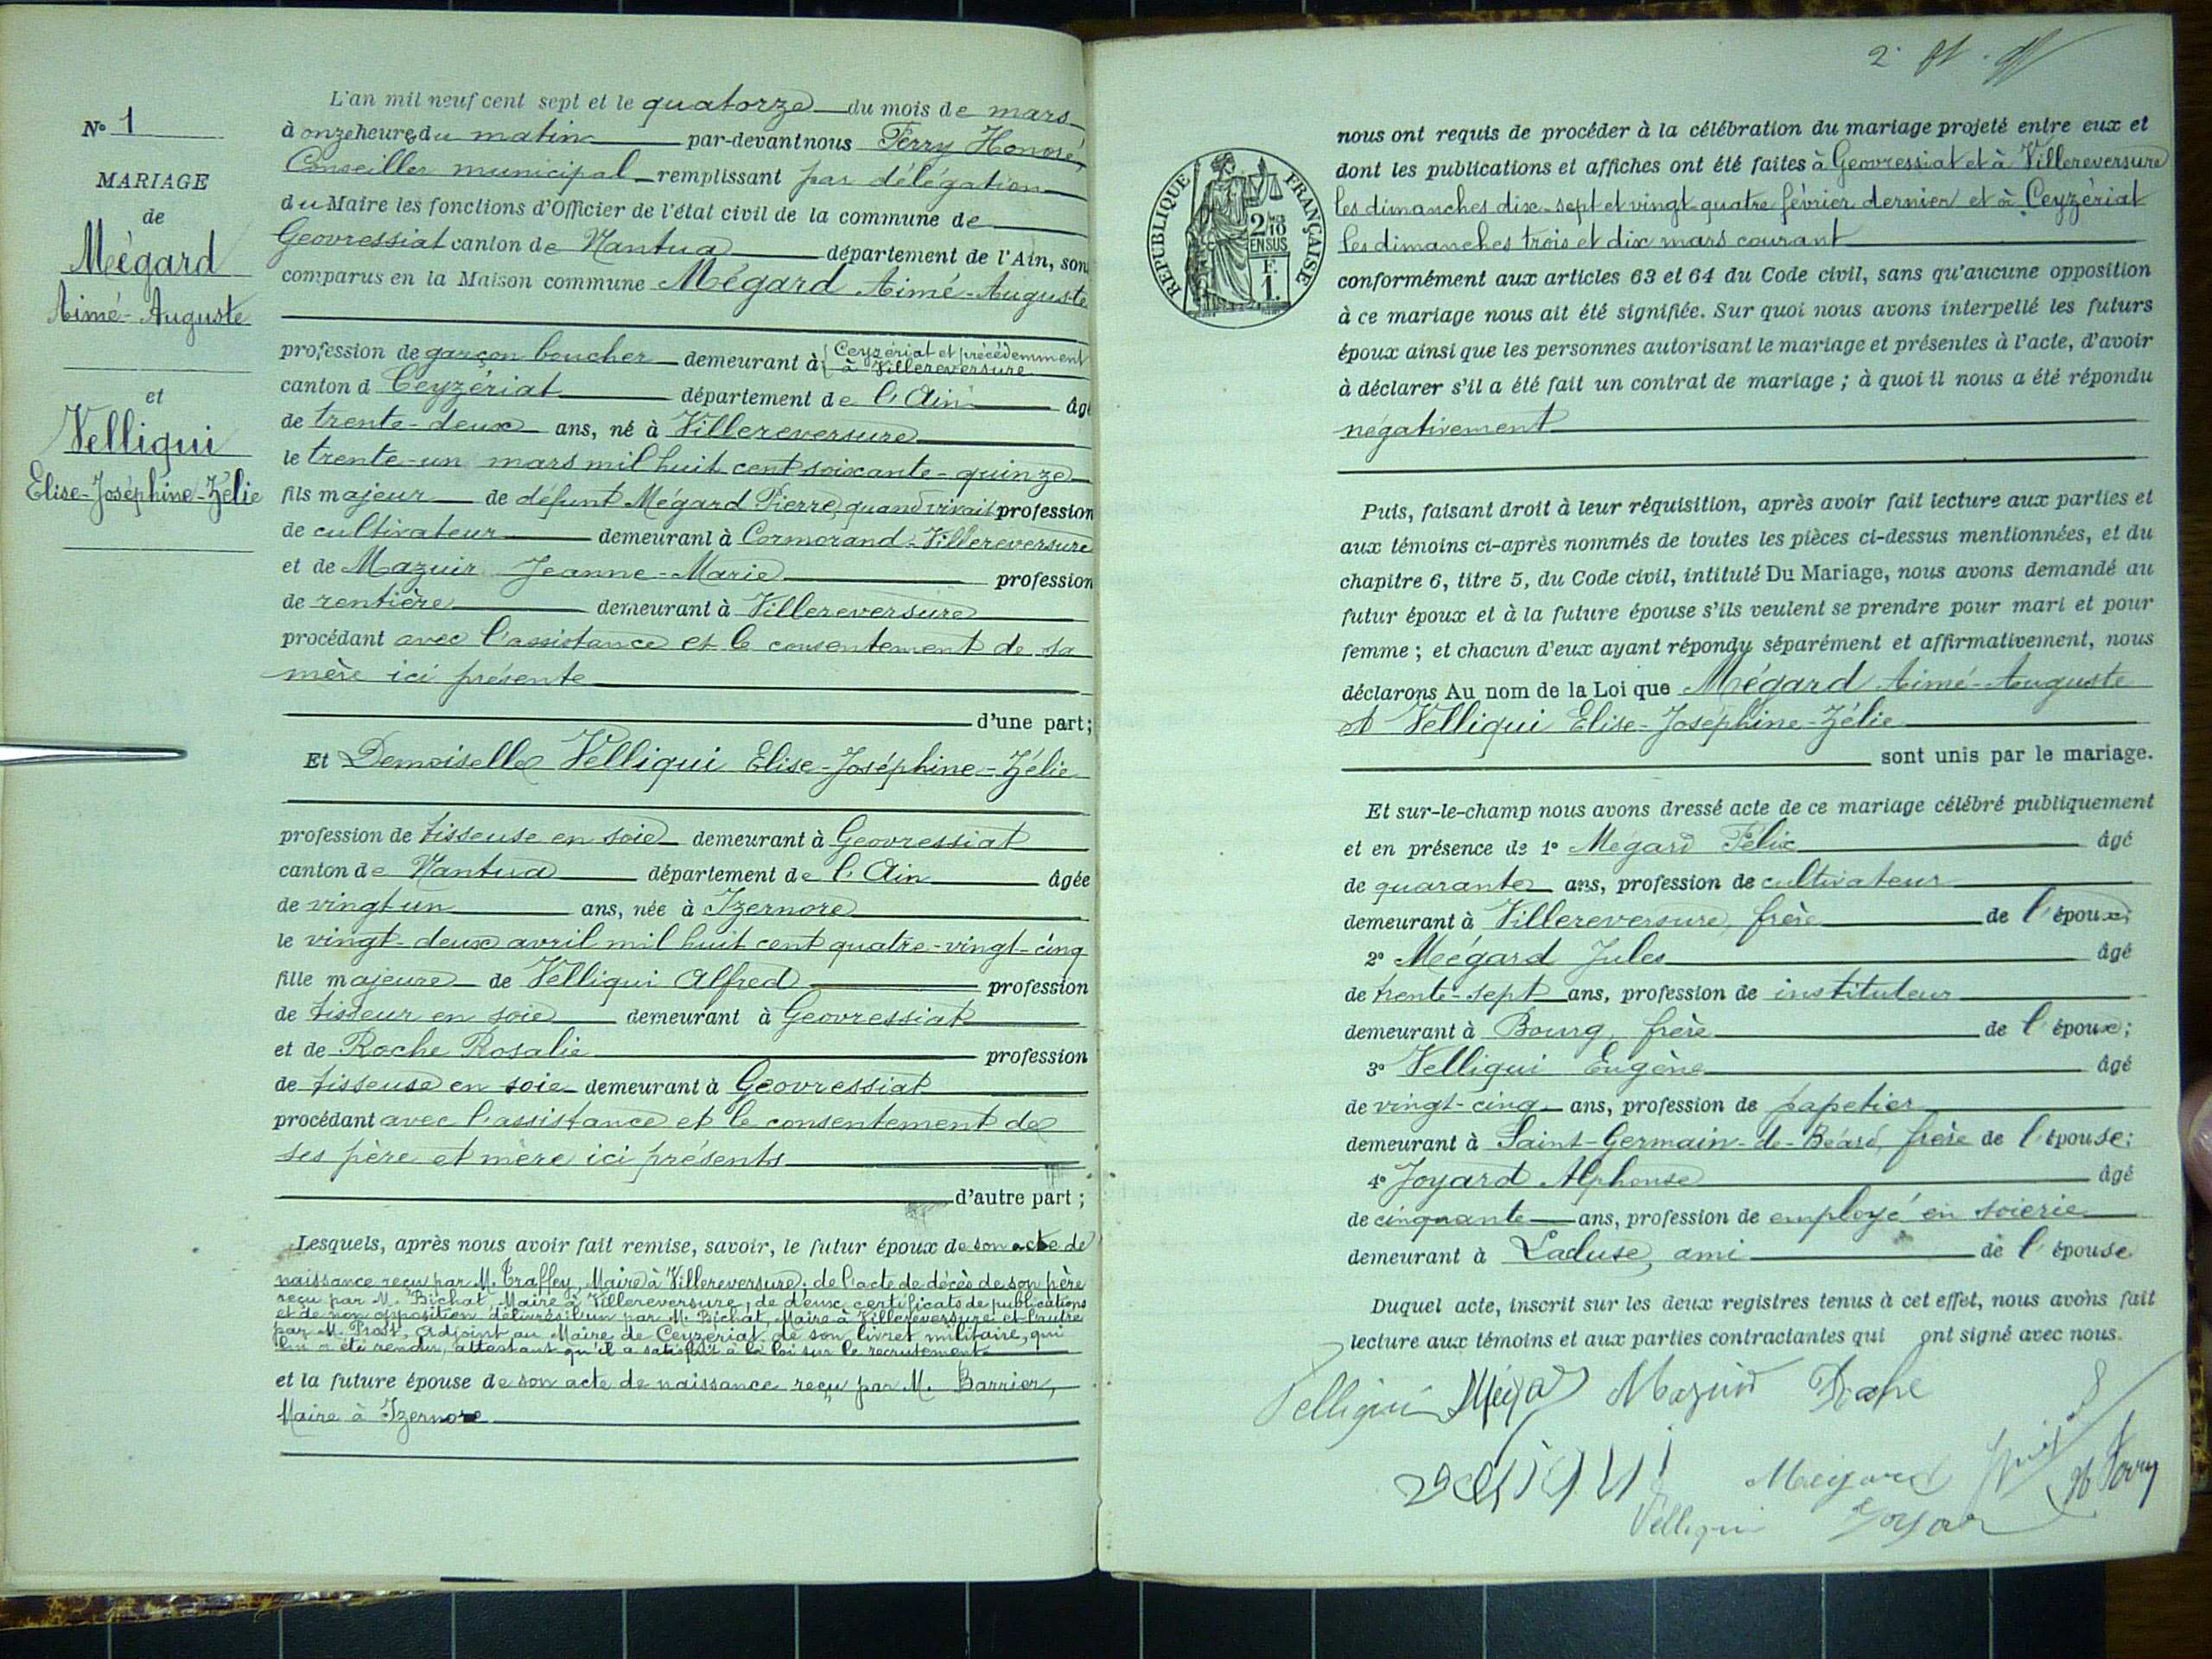 N° 1
MARIAGE
de
Mégard
Aimé-Auguste
et
Velliqui
Elise-Joséphine-Zélie
L'an mil neuf cent sept et le quatorze du mois de mars
à onze heures du matin par-devant nous Ferry Honoré,
Conseiller municipal remplissant par délégation
du Maire les fonctions d'Officier de l'état civil de la commune de
Geovressiat canton de Nantua département de l'Ain, son
comparus en la Maison commune Mégard Aimé-Auguste
profession de garçon boucher demeurant à Ceyzériat et précédemment
à Villereversure
canton d Ceyzériat département de l'Ain âgé
de trente-deux ans, né à Villereversure
le trente-un mars mil huit cent soixante-quinze
fils majeur de défunt Mégard Pierre, quand vivait profession
de cultivateur demeurant à Cormorand-Villereversure
et de Mazuir Jeanne-Marie profession
de rentière demeurant à Villereversure
procédant avec l'assistance et le consentement de sa
mère ici présente
d'une part;
Et Demoiselle Velliqui Elise-Joséphine-Zélie
profession de tisseuse en soie demeurant à Geovressiat
canton de Nantua département de l'Ain âgée
de vingt un ans, née à Izernore
le vingt-deux avril mil huit cent quatre-vingt-cinq
fille majeure de Velliqui Alfred profession
de tisseur en soie demeurant à Geovressiat
et de Roche Rosalie profession
de tisseuse en soie demeurant à Geovressiat
procédant avec l'assistance et le consentement de
ses père et mère ici présents
d'autre part;
Lesquels, après nous avoir fait remise, savoir, le futur époux de son acte de
naissance reçu par M. Traffey, Maire à Villereversure; de l'acte de décès de son père
reçu par M. Bichat, Maire à Villereversure; de deux certificats de publications
et de non opposition délivrés l'un par M. Bichat, Maire à Villereversure et l'autre
par M. Prost, Adjoint au Maire de Ceyzeriat de son livret militaire, qui
lui a été rendu, attestant qu'il a satisfait à la loi sur le recrutement
et la future épouse de son acte de naissance reçu par M. Barrier,
Maire à Izernore
2
REPUBLIQUE FRANÇAISE
2 10
EN SUS
F.
1.
nous ont requis de procéder à la célébration du mariage projeté entre eux et
dont les publications et affiches ont été faites à Geovressiat et à Villereversure
les dimanches dix-sept et vingt-quatre février dernier et à Ceyzériat
les dimanches trois et dix mars courant
conformément aux articles 63 et 64 du Code civil, sans qu'aucune opposition
à ce mariage nous ait été signifiée. Sur quoi nous avons interpellé les futurs
époux ainsi que les personnes autorisant le mariage et présentes à l'acte, d'avoir
à déclarer s'il a été fait un contrat de mariage; à quoi il nous a été répondu
négativement
Puis, faisant droit à leur réquisition, après avoir fait lecture aux parties et
aux témoins ci-après nommés de toutes les pièces ci-dessus mentionnées, et du
chapitre 6, titre 5, du Code civil, intitulé Du Mariage, nous avons demandé au
futur époux et à la future épouse s'ils veulent se prendre pour mari et pour
femme; et chacun d'eux ayant répondu séparément et affirmativement, nous
déclarons Au nom de la Loi que Mégard Aimé-Auguste
et Velliqui Elise-Joséphine-Zélie
sont unis par le mariage.
Et sur-le-champ nous avons dressé acte de ce mariage célébré publiquement
et en présence de 1° Mégard Félix âgé
de quarante ans, profession de cultivateur
demeurant à Villereversure, frère de l'époux;
2° Mégard Jules âgé
de trente-sept ans, profession de instituteur
demeurant à Bourg, frère de l'époux;
3° Velliqui Eugène âgé
de vingt-cinq ans, profession de papetier
demeurant à Saint-Germain-de-Béard, frère de l'épouse;
4° Joyard Alphonse âgé
de cinquante ans, profession de employé en soierie
demeurant à Lacluse, ami de l'épouse
Duquel acte, inscrit sur les deux registres tenus à cet effet, nous avons fait
lecture aux témoins et aux parties contractantes qui ont signé avec nous.
Velliqui Mégard Mazuir Roche
Mégard
H Ferry
Velliqui Joyard